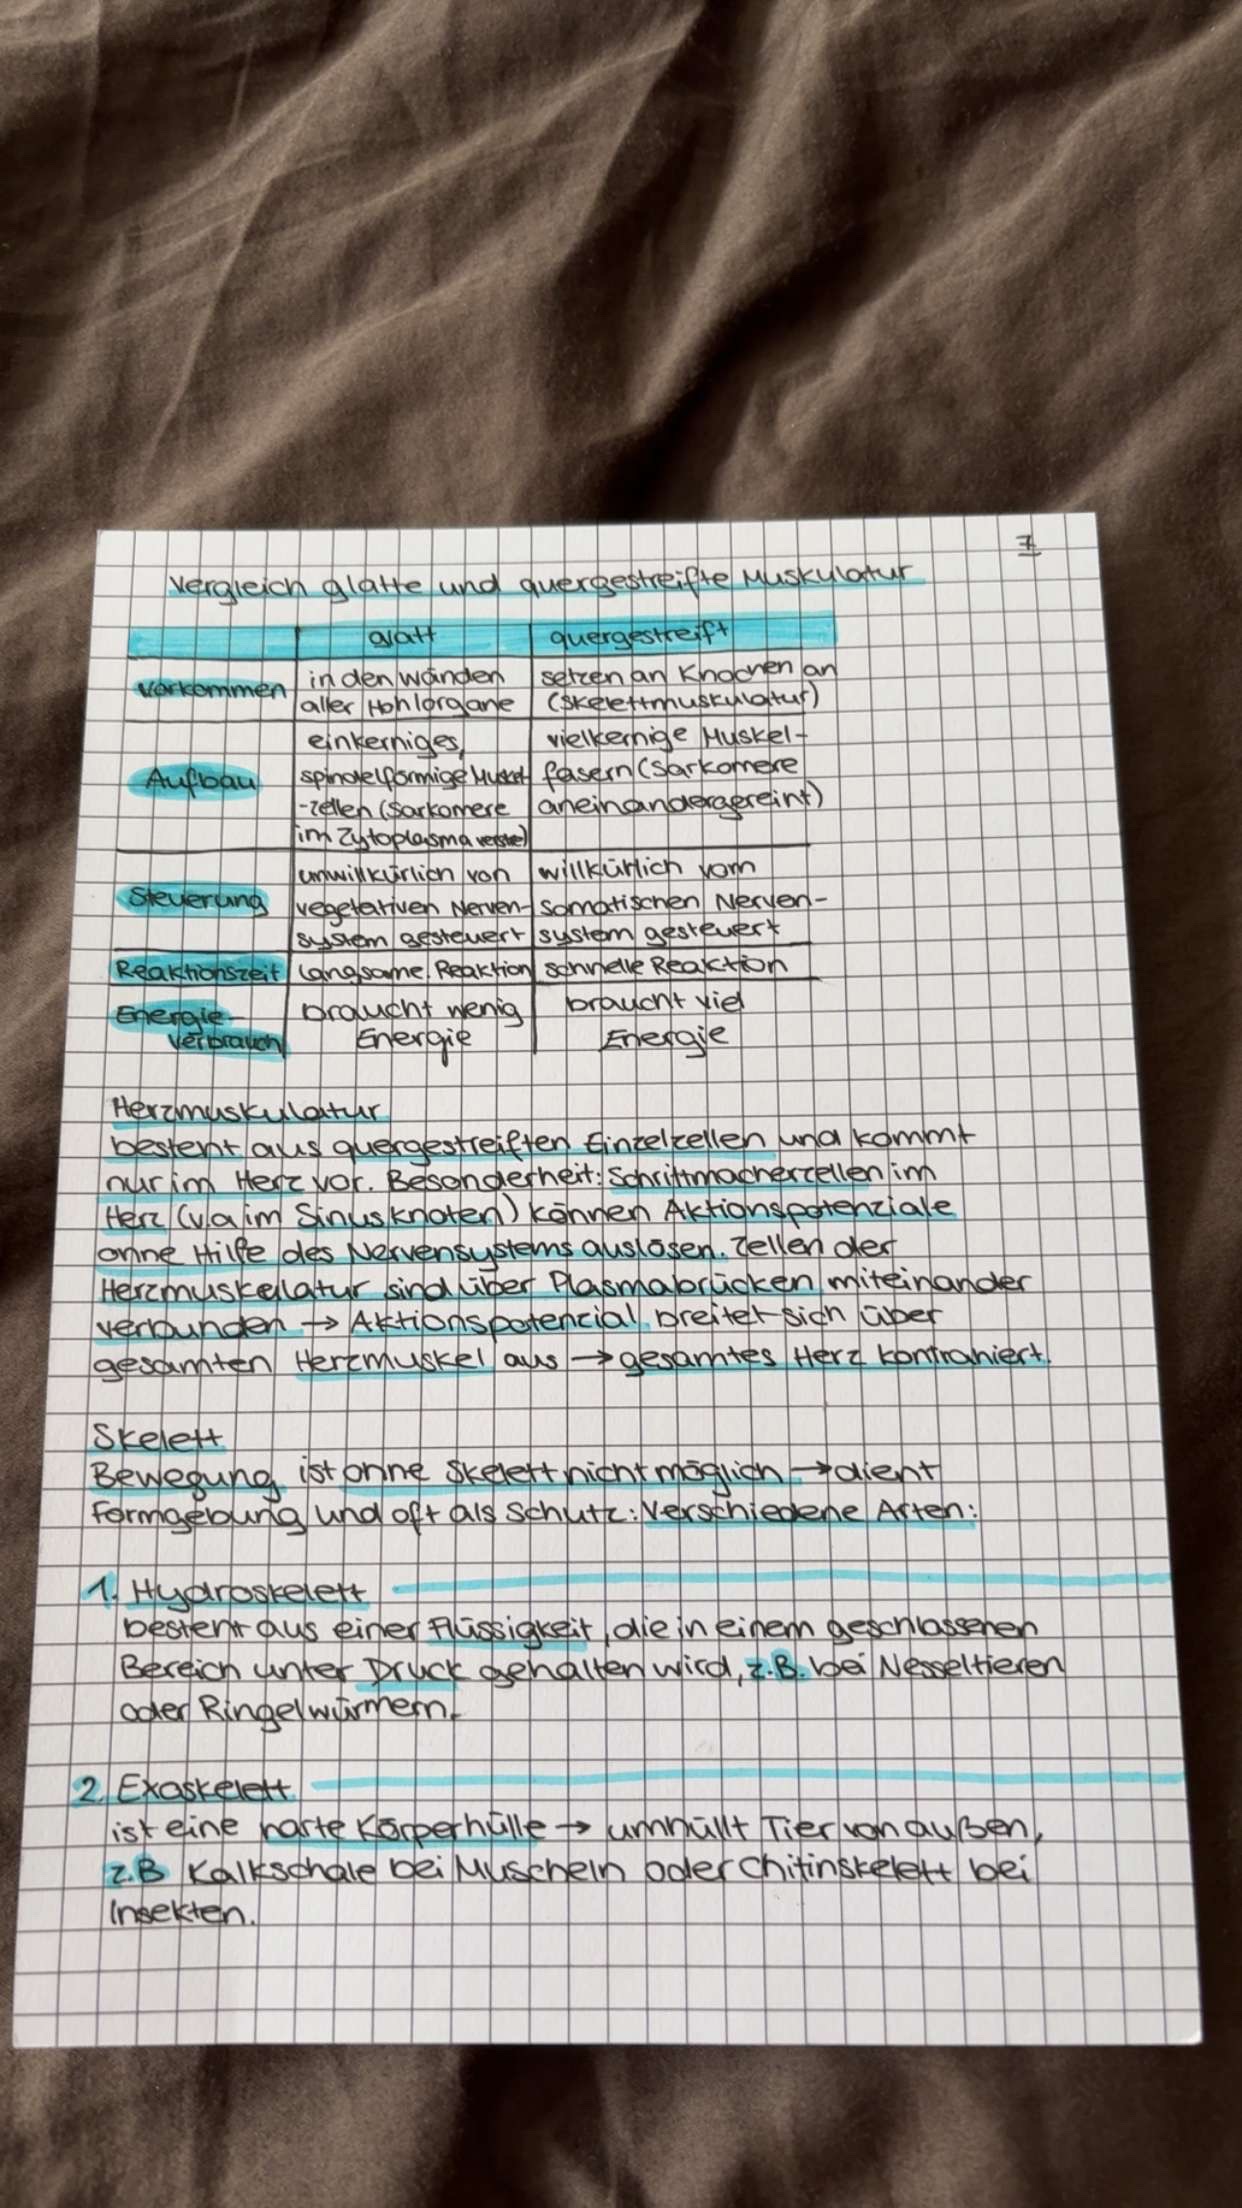 7
Vergleich glatte und quergestreifte Muskulatur
glatt quergestreift
Vorkommen in den Wänden setzen an Knochen an
aller Hohlorgane (Skelettmuskulatur)
einkerniges, vielkernige Muskel-
Aufbau spindelförmige Muskel fasern (Sarkomere
-zellen (Sarkomere aneinandergereiht)
im Zytoplasma
unwillkürlich von willkürlich vom
Steuerung vegetativen Nerven- somatischen Nerven-
system gesteuert system gesteuert
Reaktionszeit langsame Reaktion schnelle Reaktion
Energie- braucht wenig braucht viel
verbrauch Energie Energie
Herzmuskulatur
besteht aus quergestreiften Einzelzellen und kommt
nur im Herz vor. Besonderheit: Schrittmacherzellen im
Herz (v.a im Sinusknoten) können Aktionspotenziale
ohne Hilfe des Nervensystems auslösen. Zellen der
Herzmuskellatur sind über Plasmabrücken miteinander
verbunden → Aktionspotenzial breitet sich über
gesamten Herzmuskel aus → gesamtes Herz kontrahiert.
Skelett
Bewegung ist ohne Skelett nicht möglich → dient
Formgebung und oft als Schutz: Verschiedene Arten:
1. Hydroskelett
besteht aus einer Flüssigkeit, die in einem geschlossenen
Bereich unter Druck gehalten wird, z.B. bei Nesseltieren
oder Ringelwürmern.
2. Exoskelett
ist eine harte Körperhülle → umhüllt Tier von außen,
z.B Kalkschale bei Muscheln oder Chitinskelett bei
Insekten.